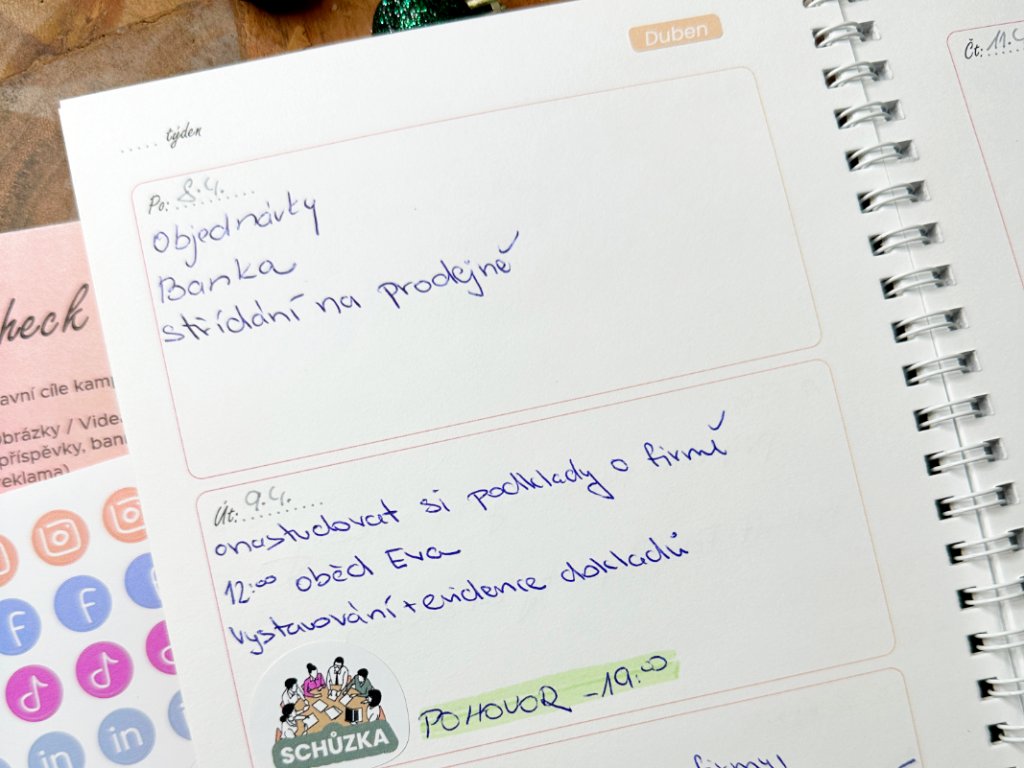 Duben
týden
Po: 8.4.
Objednávky
Banka
střídání na prodejně
Út: 9.4.
onastudovat si podklady o firmě
12:00 oběd Eva
vystavování+evidence dokladů
SCHŮZKA
POHOVOR -19:00
Čt: 11.
heck
avní cíle kam
brázky / Vide
příspěvky, ban
eklama)